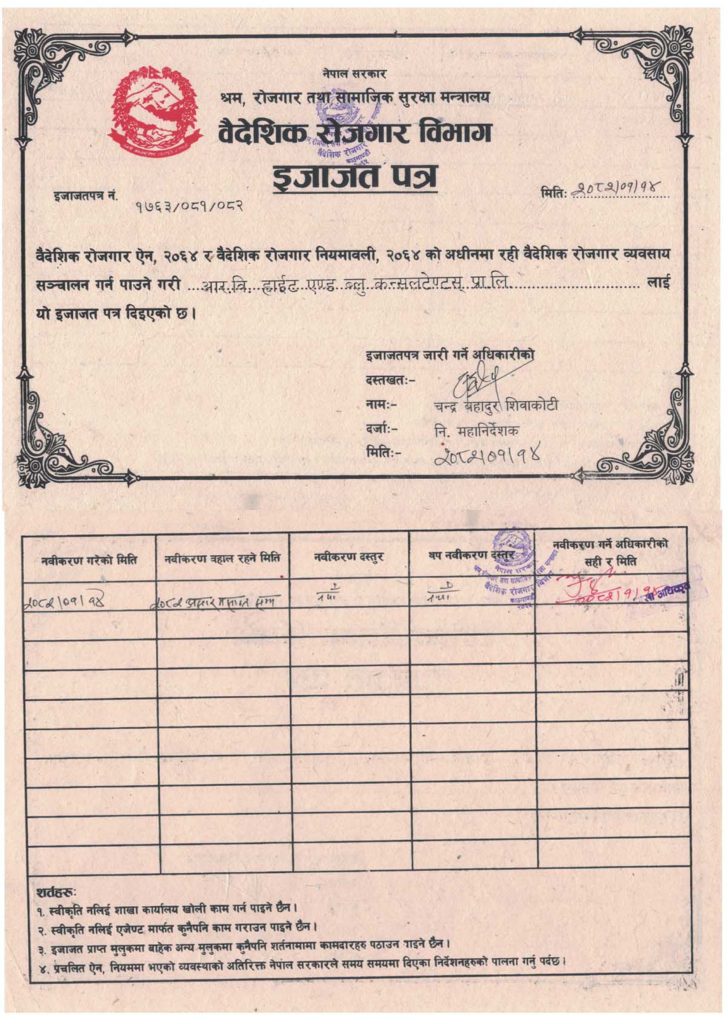 नेपाल सरकार
श्रम, रोजगार तथा सामाजिक सुरक्षा मन्त्रालय
वैदेशिक रोजगार विभाग
इजाजत पत्र
इजाजतपत्र नं. १७६३/०८१/०८२
मितिः २०८२/०१/१४
वैदेशिक रोजगार ऐन, २०६४ र वैदेशिक रोजगार नियमावली, २०६४ को अधीनमा रही वैदेशिक रोजगार व्यवसाय
सञ्चालन गर्न पाउने गरी ...आर.वि. ह्वाईट एण्ड ब्लु कन्सलटेण्टस् प्रा.लि............ लाई
यो इजाजत पत्र दिइएको छ।
इजाजतपत्र जारी गर्ने अधिकारीको
दस्तखतः-
नामः- चन्द्र बहादुर शिवाकोटी
दर्जाः- नि. महानिर्देशक
मितिः- २०८२/०१/१४
नवीकरण गरेको मिति नवीकरण वहाल रहने मिति नवीकरण दस्तुर थप नवीकरण दस्तुर नवीकरण गर्ने अधिकारीको सही र मिति
२०८२/०१/१४ २०८२ २०८२/१/१४
शर्तहरुः
१. स्वीकृति नलिई शाखा कार्यालय खोली काम गर्न पाइने छैन।
२. स्वीकृति नलिई एजेण्ट मार्फत कुनैपनि काम गराउन पाइने छैन।
३. इजाजत प्राप्त मुलुकमा बाहेक अन्य मुलुकमा कुनैपनि शर्तनामामा कामदारहरु पठाउन पाइने छैन।
४. प्रचलित ऐन, नियममा भएको व्यवस्थाको अतिरिक्त नेपाल सरकारले समय समयमा दिएका निर्देशनहरुको पालना गर्नु पर्दछ।